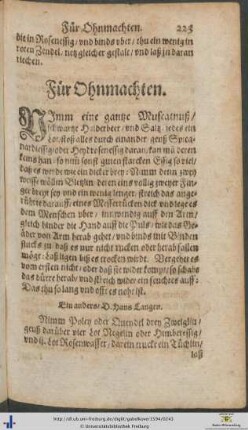 Für Ohnmachten. 225
dit in Rosenessig / vnd binds vber / thu ein wentg in
roten Zendel / netz gleicher gestalt / vnd laß jn daran
riechen.
Für Ohnmachten.
NImm eine gantze Muscatnuß /
schwartze Holderbeer / vnd Saltz / jedes ein
Lot / stoß alles durch einander / geuß
essig / oder darzu / kan mã deren
keins han / so nim sonst guten starcken Essig so viel /
daß es werde wie ein dicker brey: Nimm denn zwey
weisse wüllen deren eins vollig zweyer Fin-
ger breyt sey vnd ein wenig lenger / streich das ange-
rührte darauff / eines Messerrücken dick / vnd lege es
dem Menschen vber / inwendig auff den Arm /
gleich hinder die Hand auff die Pulß / wie das Ge-
äder von Arm herab gehet / vnd binds mit Binden
starck zu / daß es nur nicht rucken oder herab fallen
möge / laß ligen biß es trocken wirdt. Vergehet es
vom ersten nicht / oder daß sie wider kompt / so schabs
das dürre herab / vnd streich wider ein feuchtes auff:
Das thu so lang vnd offt es noht ist.
Ein anders / D. Hans Langen.
Nimm Poley oder Quendel drey Zweiglin /
geuß darüber vier Lot Negelin oder Himbeeressig /
vnd ij. Lot Rosenwasser / darein truck ein Tüchlin /
laß
http://dl.ub.uni-freiburg.de/diglit/gabelkover1594/0243
© Universitätsbibliothek Freiburg